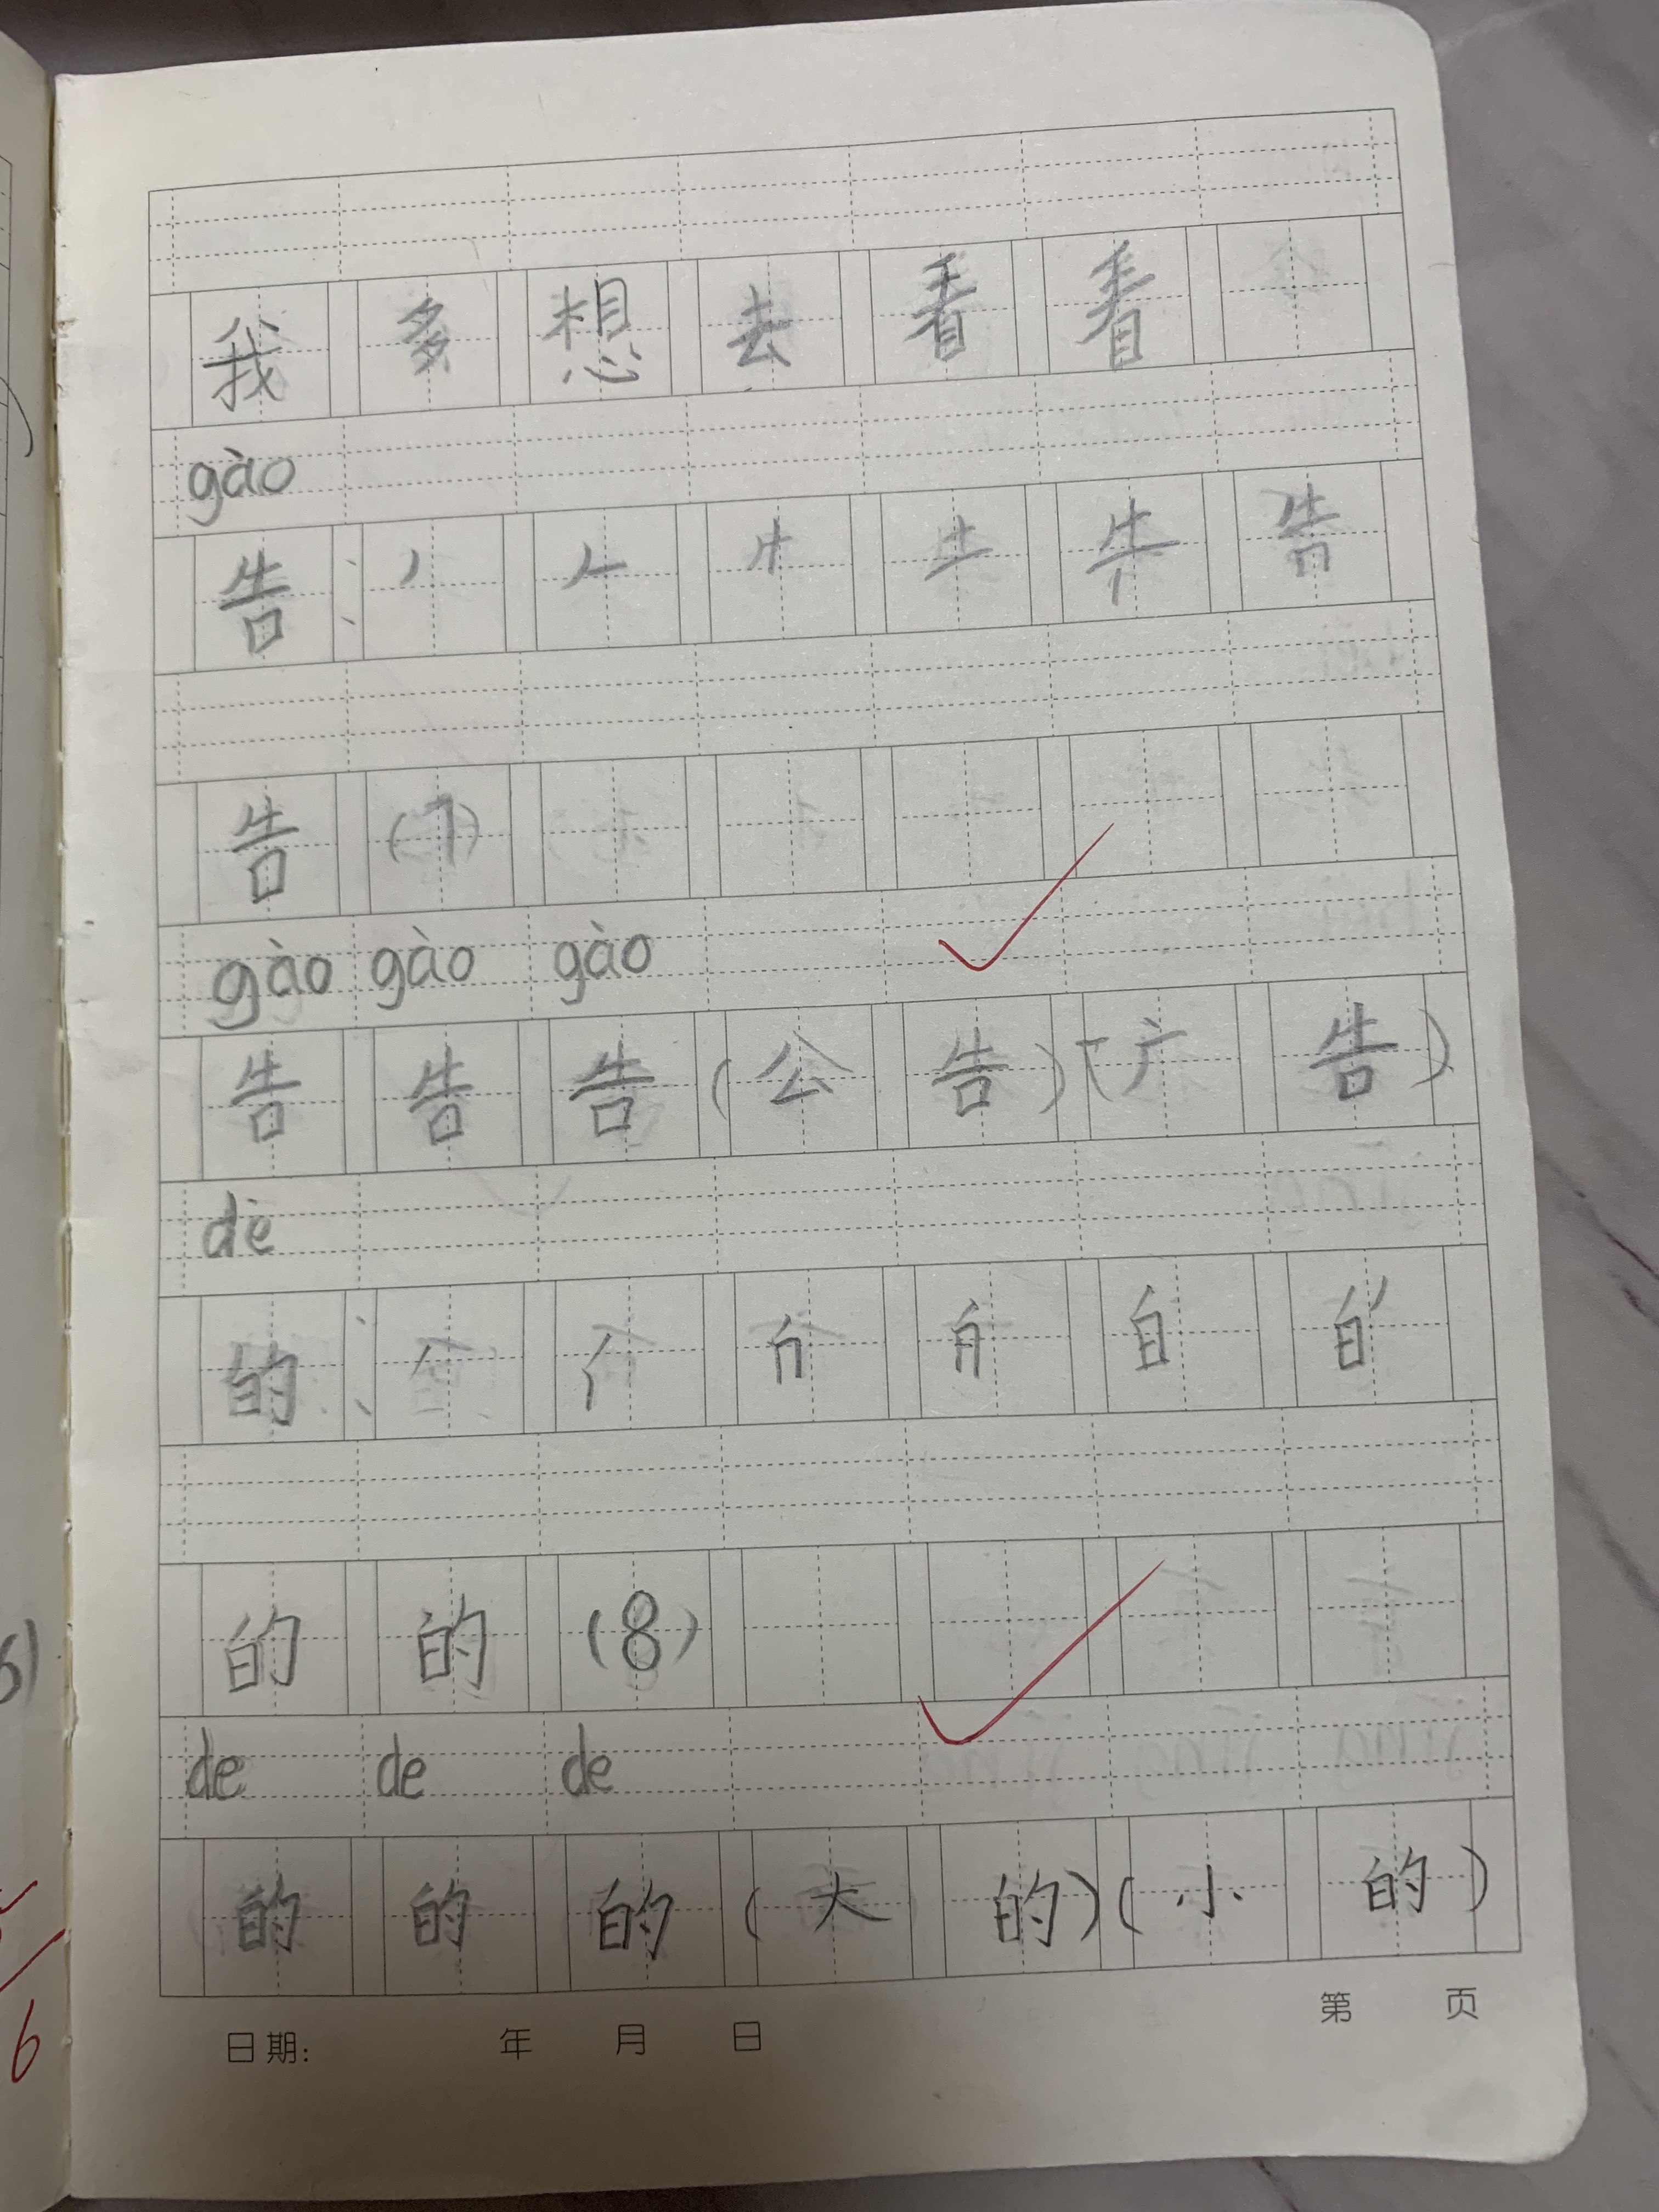 我多想去看看
gào
告:丿𠂉
告
告(7)
gào gào gào
告告告(公告)(广告)
de
的:丿亻白
的的(8)
de de de
的的的(大的)(小的)
日期: 年 月 日 第 页
6)
6